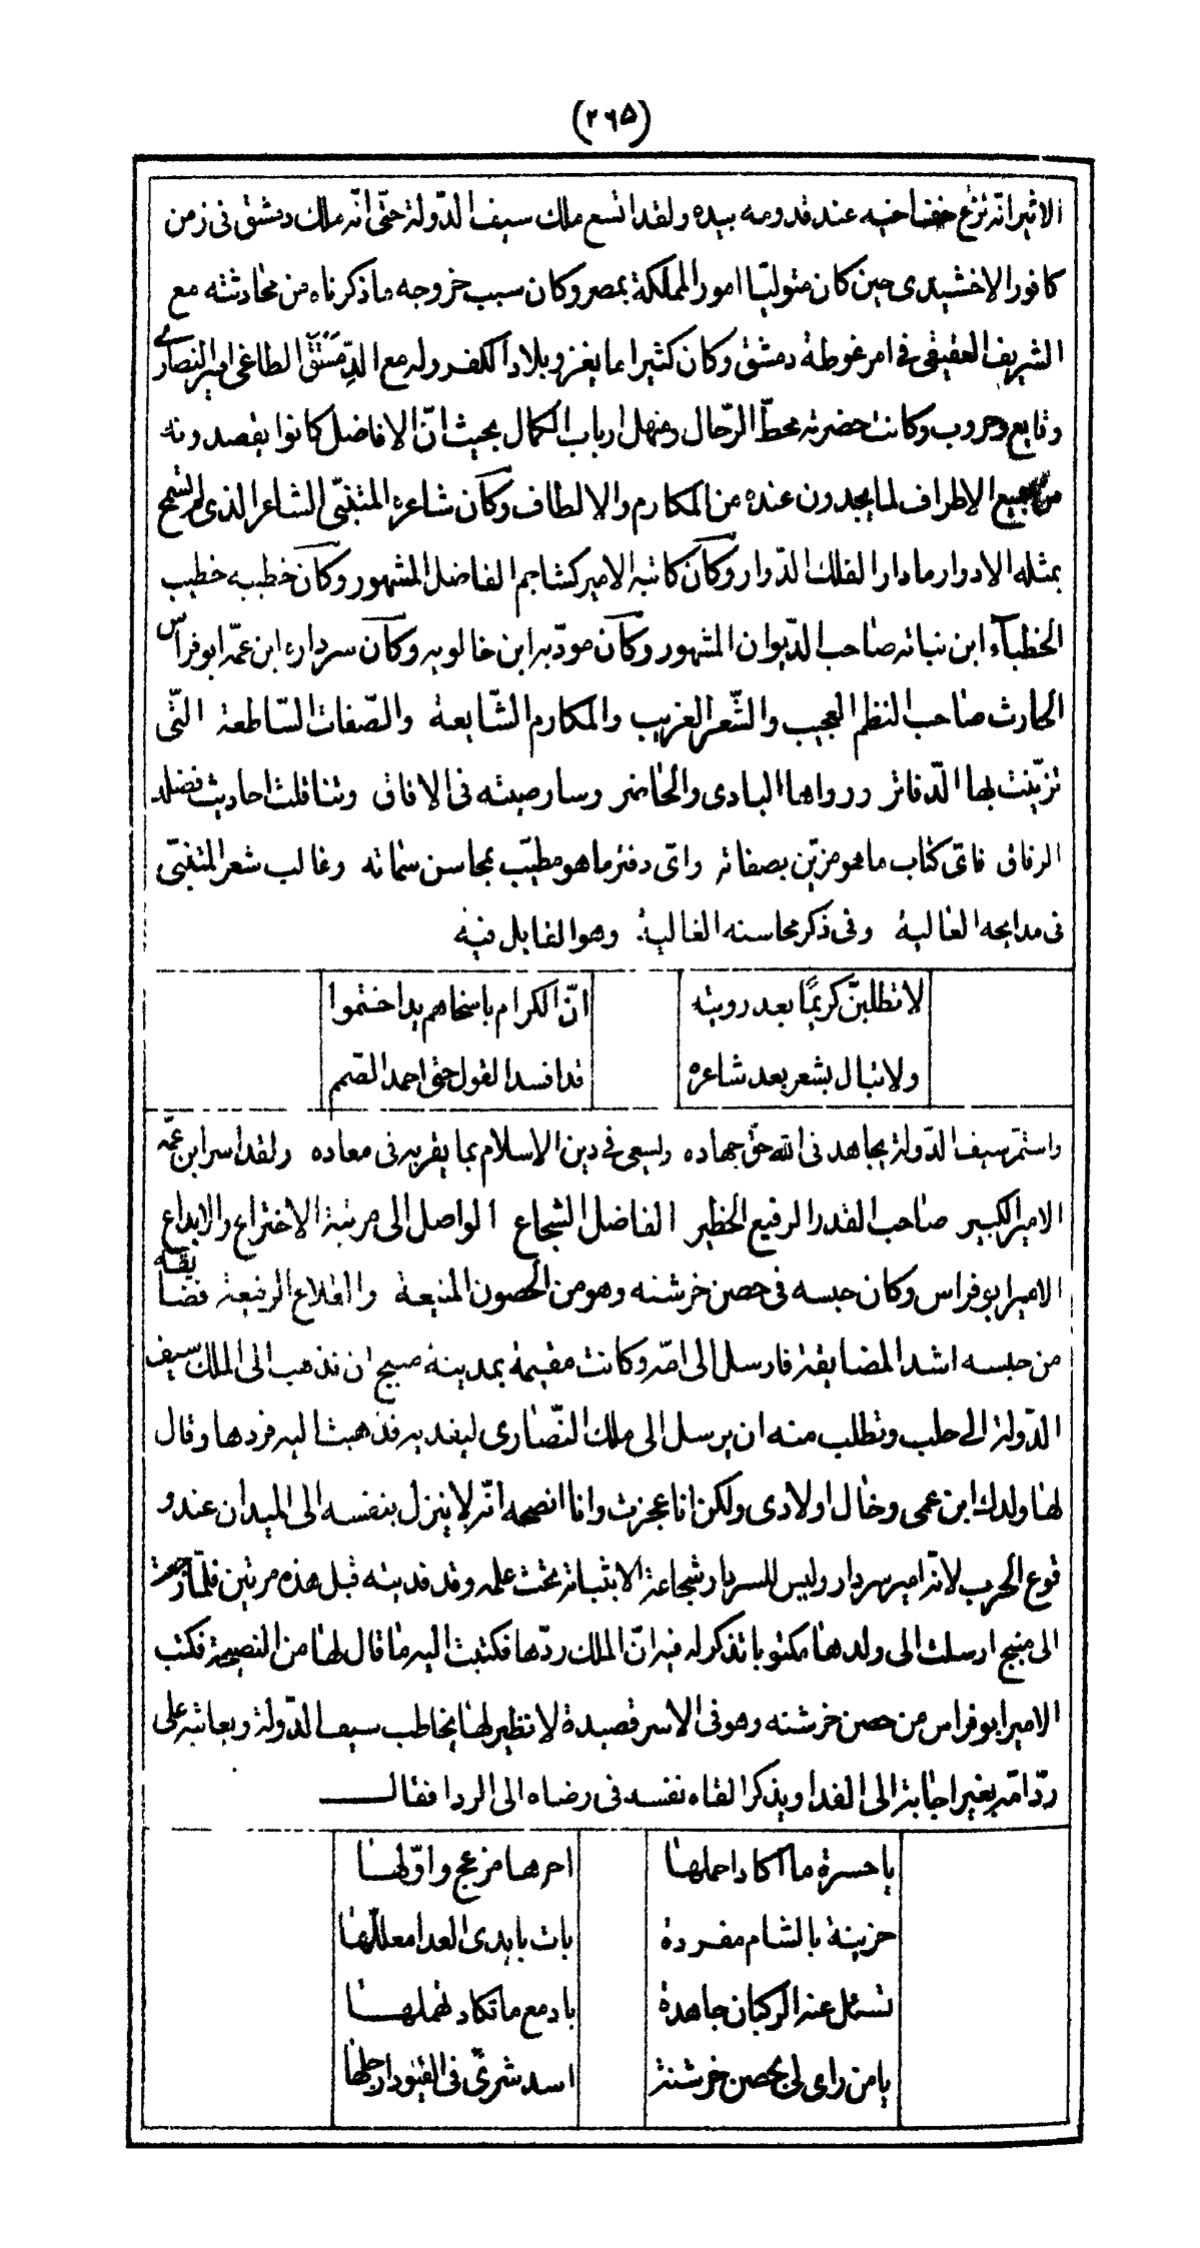 (٢٦٥)
الاثير انّه نزع خفّا خفيه عند قدومه بيده ولقد اتسع ملك سيف الدّولة حتّى انّه ملك دمشق فى زمن
كافور الاخشيدى حين كان متوليّا امور المملكة بمصر وكان سبب خروجه ما ذكرناه من محادثته مع
الشريف العقيقى فى امر غوطة دمشق وكان كثيرا ما يغزو بلاد الكفر وله مع الدّمستق الطاغى امير النصارى
وقايع وحروب وكانت حضرته محطّ الرّحال ومنهل ارباب الكمال بحيث انّ الافاضل كانوا يقصدونه
من جميع الاطراف لما يجدون عنده من المكارم والالطاف وكان شاعره المتنبّى الشاعر الذى لم تسمح
بمثله الادوار ما دار الفلك الدّوار وكان كاتبه الامير كشاجم الفاضل المشهور وكان خطيبه خطيب
الخطبآء ابن نباته صاحب الدّيوان المشهور وكان مودّبه ابن خالويه وكان سرداره ابن عمّه ابو فراس
الحارث صاحب النظم العجيب والشّعر الغريب والمكارم الشّايعة والصّفات السّاطعة التّى
تزيّنت بها الدّفاتر ورواها البادى والحاضر وسار صيته فى الافاق وتناقلت احاديث فضله
الرفاق فاى كتاب ما هو مزيّن بصفاته واى دفتر ما هو مطيّب بمحاسن سماته وغالب شعر المتنبّى
فى مدايحه الغالية وفى ذكر محاسنه الغالية وهو القايل فيه
لا تطلبنّ كريمًا بعد رويته انّ الكرام باسخاهم يدا ختموا
ولا تبال بشعر بعد شاعره قد افسد القول حتى احمد الصّمم
واستمر سيف الدّولة يجاهد فى الله حقّ جهاده ويسعى فى دين الاسلام بما يقربه فى معاده ولقد اسر ابن عمّه
الامير الكبير صاحب القدر الرفيع الخطير الفاضل الشجاع الواصل الى مرتبة الاختراع والابداع
الامير ابو فراس وكان حبسه فى حصن خرشنه وهو من الحصون المنيعة والقلاع الرفيعة فضايقه
من حبسه اشد المضايقة فارسل الى امّه وكانت مقيمة بمدينة منبج ان تذهب الى الملك سيف
الدّولة الى حلب وتطلب منه ان يرسل الى ملك النّصارى ليفديه فذهبت اليه فردها وقال
لها ولدك ابن عمى وخال اولادى ولكن انا عجزت وانا انصحه انّه لا ينزل بنفسه الى الميدان عند و
قوع الحرب لانّه امير سردار وليس للسردار شجاعة الا بثباته تحت علمه وقد فديته قبل هذه مرتين فلمّا رجعت
الى منبج ارسلت الى ولدها مكتوبا تذكر له فيه انّ الملك ردّها فكتبت اليه ما قال لها من النصيحة فكتب
الامير ابو فراس من حصن خرشنه وهو فى الاسر قصيدة لا نظير لها يخاطب سيف الدّولة ويعاتبه على
ردّ امّه بغير اجابة الى الفدا ويذكر القاه نفسه فى رضاه الى الردا فقال
يا حسرة ما اكاد احملها اخرها مزعج واوّلها
حزينة بالشام مفردة بات بايدى العدا معللّها
تسئل عنه الركبان جاهدة بادمع ما تكاد تمهلها
يا من راى لى بحصن خرشنة اسد شرى فى القيود ارجلها